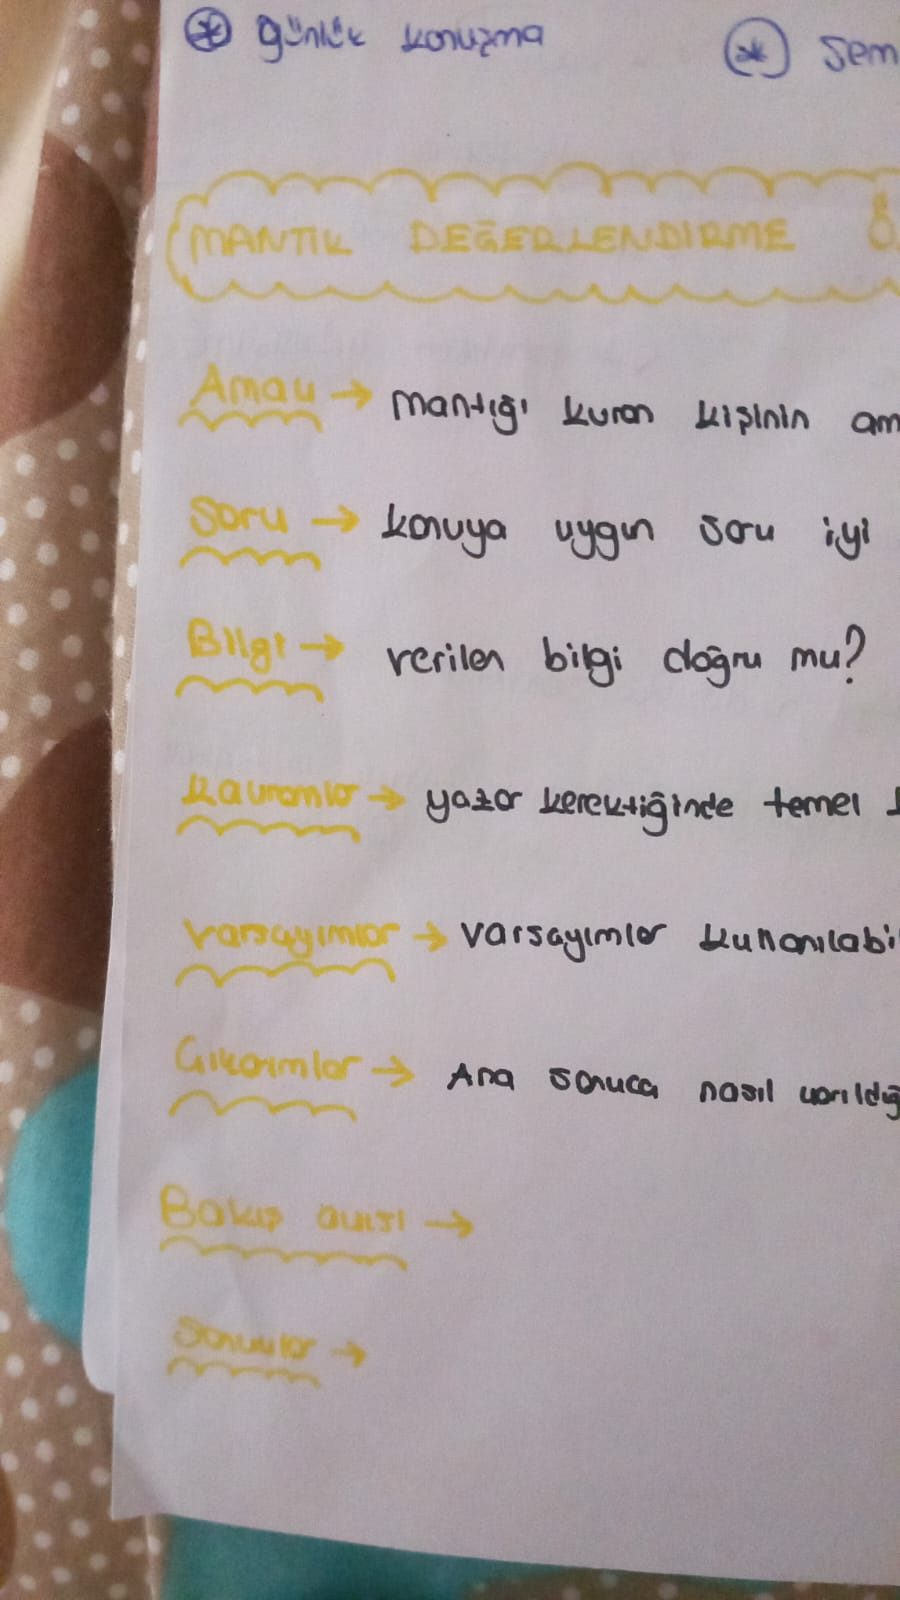 günlük konuşma
MANTIK DEĞERLENDİRME
Amaç → Mantığı kuran kişinin
Soru → konuya uygun soru iyi
Bilgi → verilen bilgi doğru mu?
Kavramlar → yazar kerektiğinde temel
Varsayımlar → varsayımlar
Çıkarımlar → Ana sonuca nasıl
Bakış açısı →
Sonuçlar →